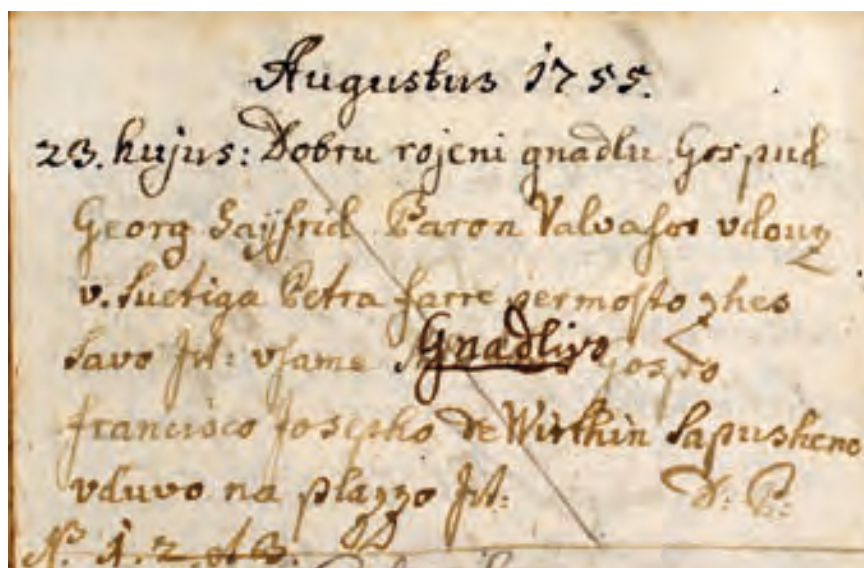 Augustus 1755.
23. hujus: Dobru rojeni gnadlu Gospud
Georg Sayfrid Baron Valvasor vdouz
v. Suetiga Petra farre per mosto zhes
Savo Jst: vsame Gnadlivo Gospo
Francisco Josepho de Wirthin Sapusheno
vduvo na plazzo Jst: D: P:
N. 1. 2. et 3.